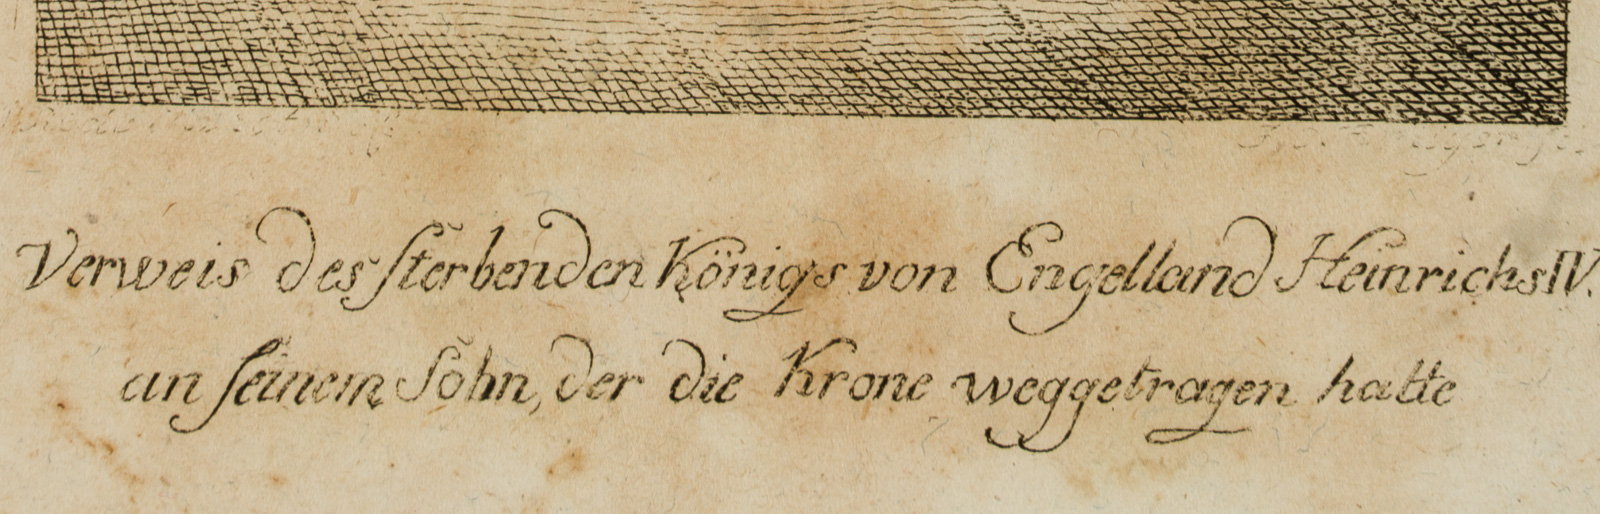 Verweis des sterbenden Königs von Engelland Heinrichs IV.
an seinem Sohn, der die Krone weggetragen hatte